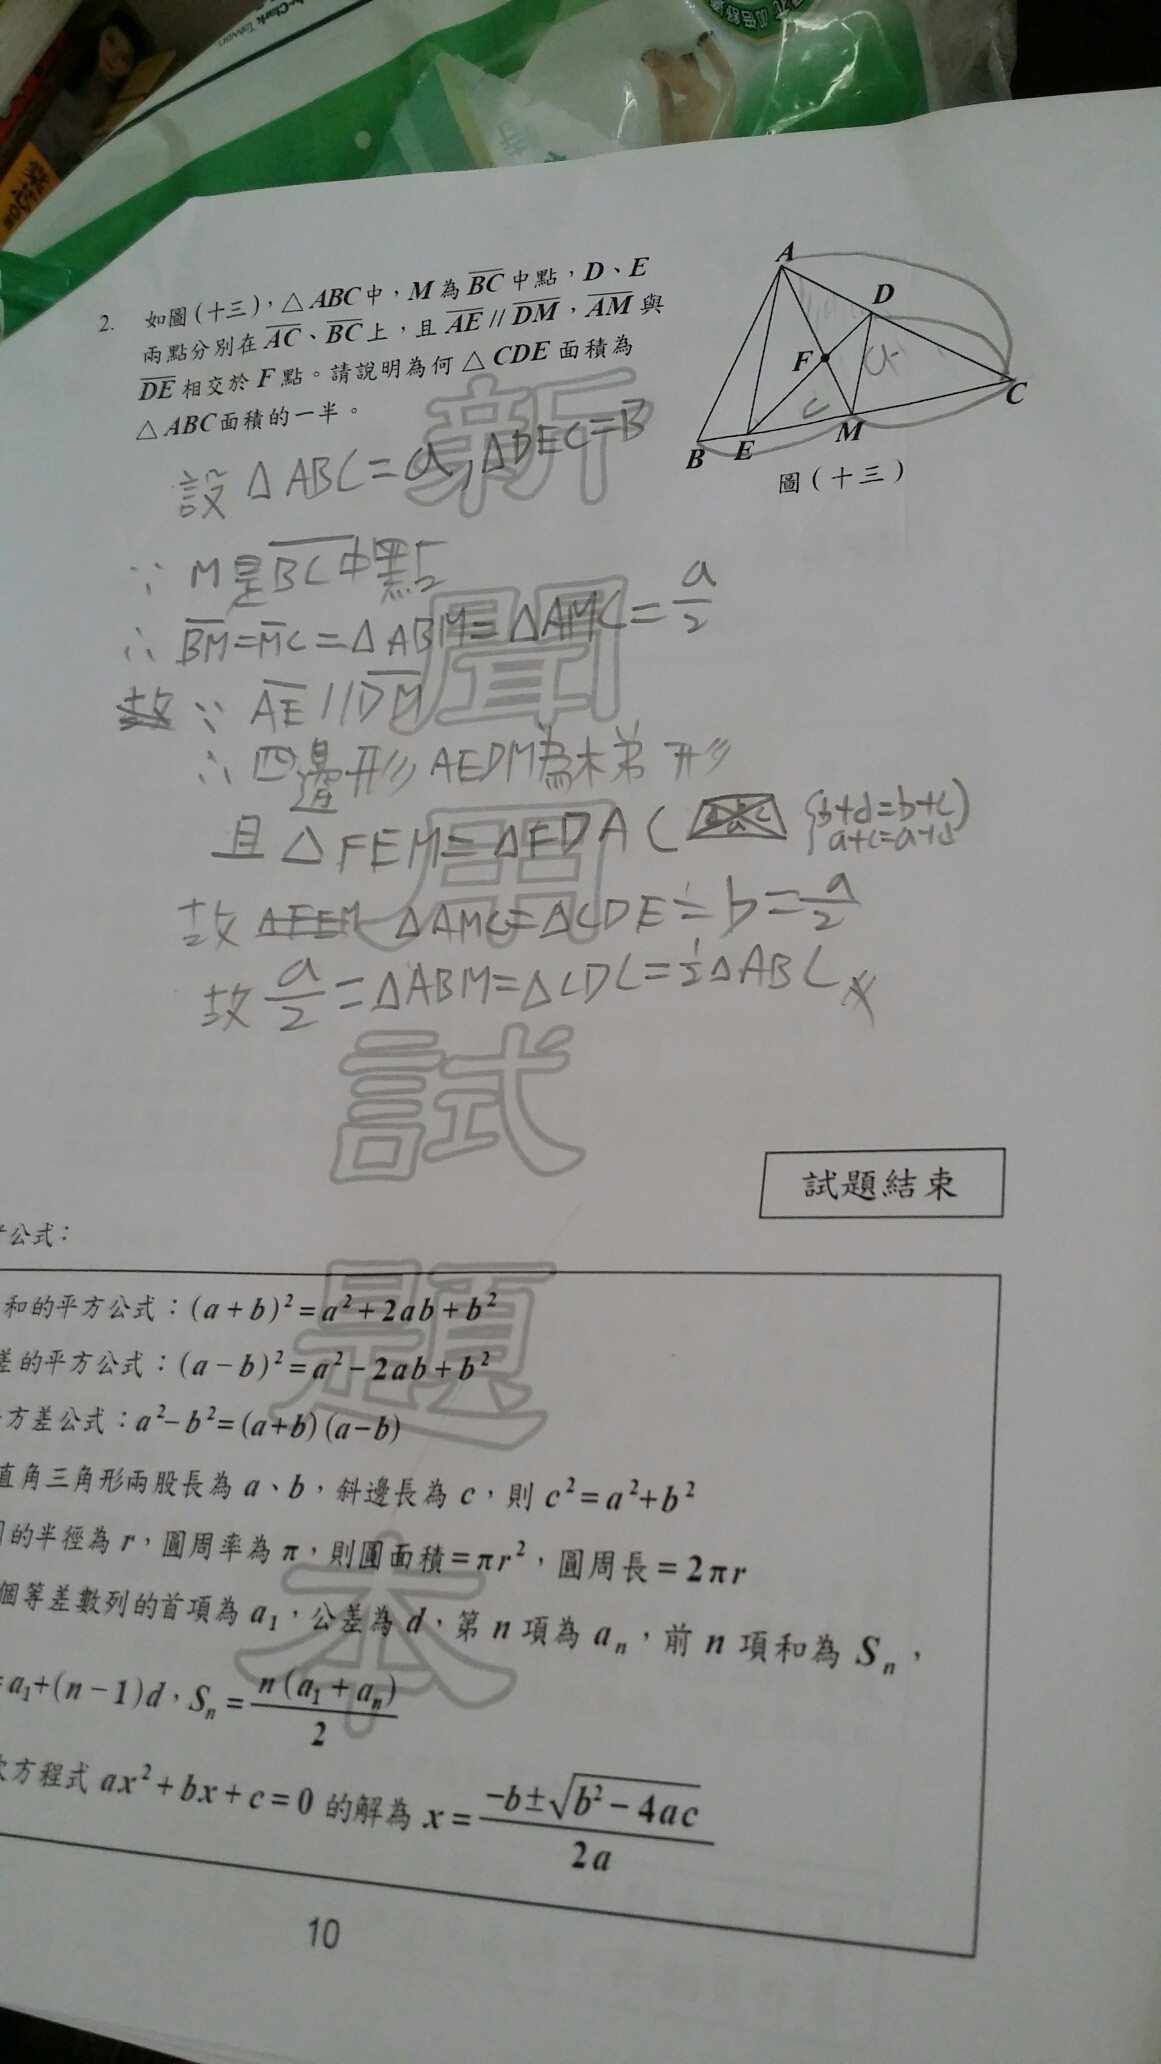 2. 如圖(十三)，△ABC中，M為BC中點，D、E
兩點分別在AC、BC上，且AE//DM，AM與
DE相交於F點。請說明為何△CDE面積為
△ABC面積的一半。
A
D
F
C
B E M
圖(十三)
設△ABC=a,△DEC=B
∵ M是BC中點
∴ BM=MC=△ABM=△AMC=a/2
故 ∵ AE//DM
∴四邊形AEDM為梯形
且△FEM=△FDA(
b+d=b+c)
a+c=a+d
故 △FEM △AMC=△CDE=b=a/2
故 a/2=△ABM=△CDC=1/2△ABC
新聞用試題本
試題結束
公式：
和的平方公式：(a+b)²=a²+2ab+b²
差的平方公式：(a−b)²=a²−2ab+b²
方差公式：a²−b²=(a+b)(a−b)
直角三角形兩股長為a、b，斜邊長為c，則c²=a²+b²
的半徑為r，圓周率為π，則圓面積=πr²，圓周長=2πr
個等差數列的首項為a₁，公差為d，第n項為aₙ，前n項和為Sₙ，
a₁+(n−1)d，Sₙ=n(a₁+aₙ)/2
次方程式ax²+bx+c=0的解為x=(−b±√(b²−4ac))/2a
10